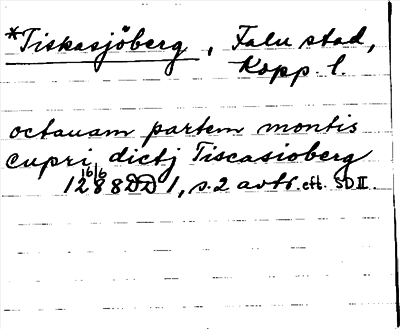 *Tiskasjöberg, Falu stad,
Kopp. l.
octauam partem montis
cupri dictj Tiscasioberg
16/6
1288 DD 1, s. 2 avtr. eft. SD II.